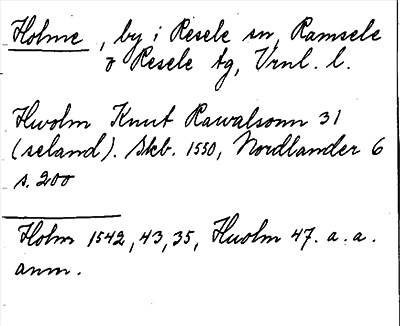 Holme, by i Resele sn, Ramsele
o Resele tg, Vrnl. l.
Hwolm Knut Rawalsonn 31
(seland). Skb. 1550, Nordlander 6
s. 200
Holm 1542, 43, 35, Huolm 47. a. a.
anm.